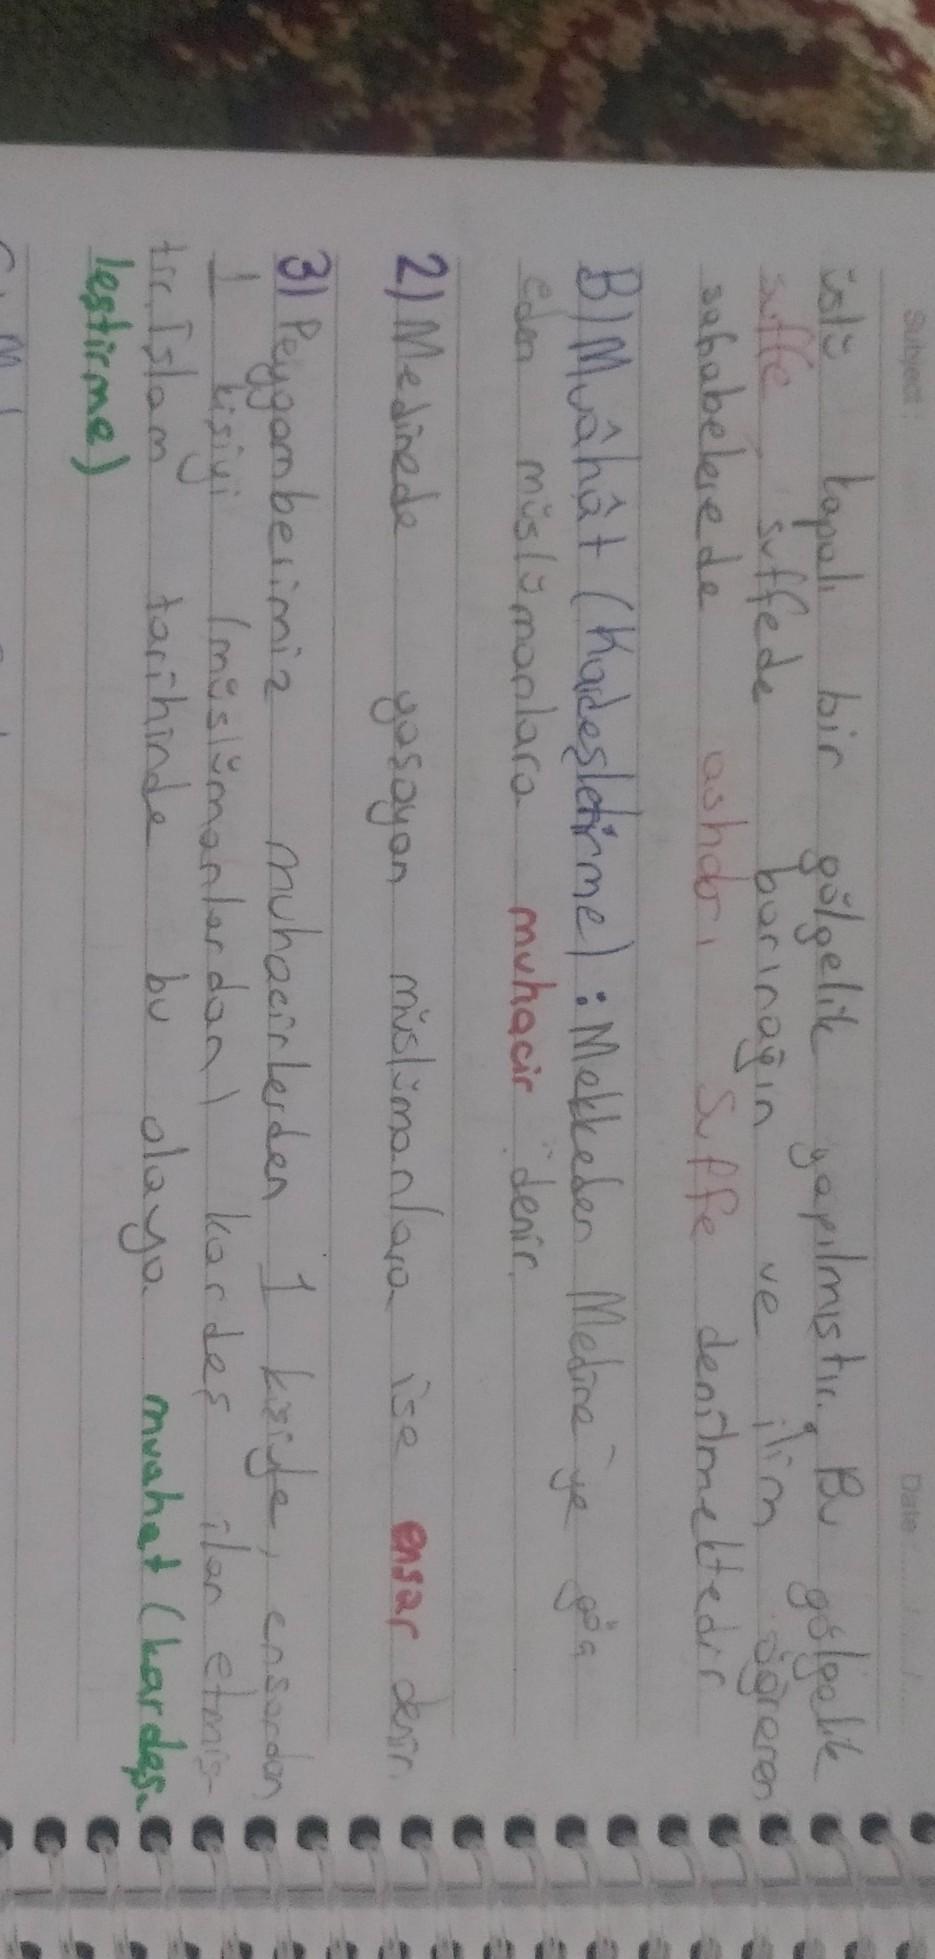 Subject: Date:
üstü kapalı bir gölgelik yapılmıştır. Bu gölgelik
suffe suffede barınağın ve ilim öğrenen
sahabelerede ashabı Suffe denilmektedir
B) Muâhât (Kardeşletirme): Mekkeden Medine'ye göç
eden müslümanlara muhacir denir.
2) Medinede yaşayan müslümanlara ise ensar denir.
3) Peygamberimiz muhacirlerden 1 kişiyle, ensardan
1 kişiyi (müslümanlardan) kardeş ilan etmiş-
tir. İslam tarihinde bu olaya muahat (kardeş-
lestirme)